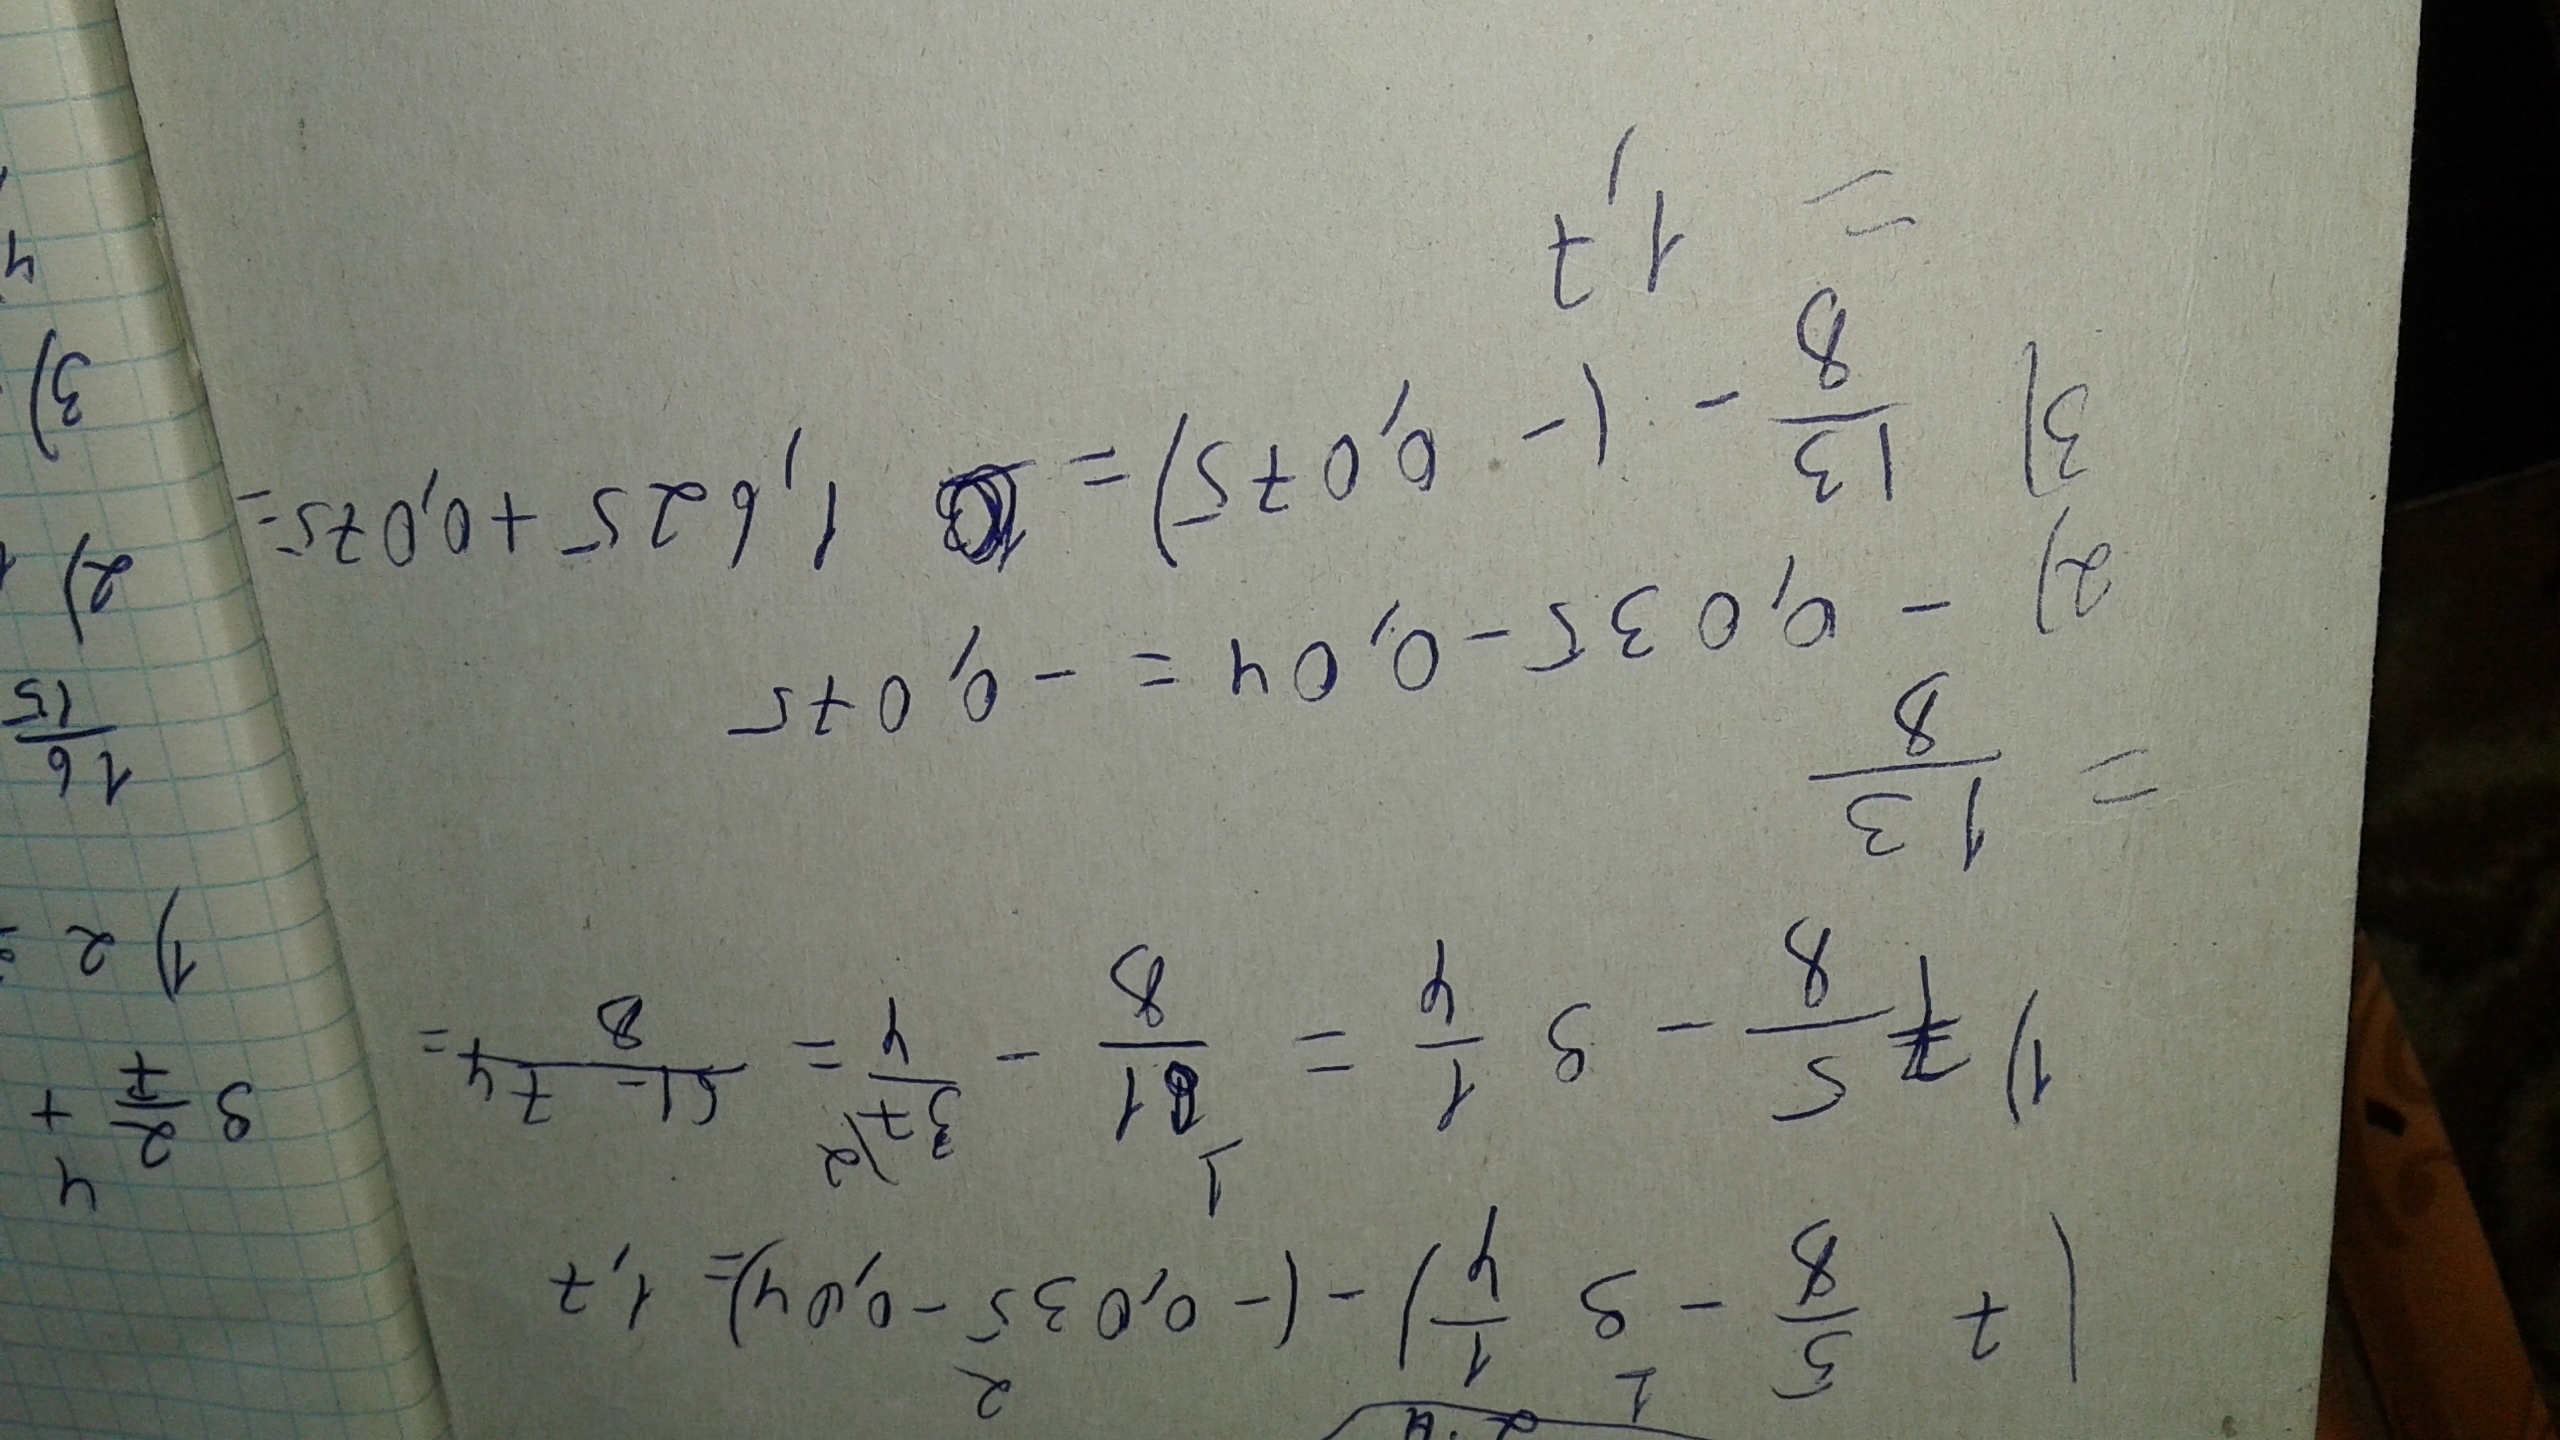 2·4
1 2
(7 5/8 - 9 1/4) - (-0,035 - 0,04) = 1,7
1) 7 5/8 - 9 1/4 = 61/8 - 37/4 = 61-74/8 =
= 13/8
2) -0,035 - 0,04 = -0,075
3) 13/8 - (-0,075) = 1,625 + 0,075 =
= 1,7
4
9 2/7 +
1) 2
16/15
2) 1
3)
4